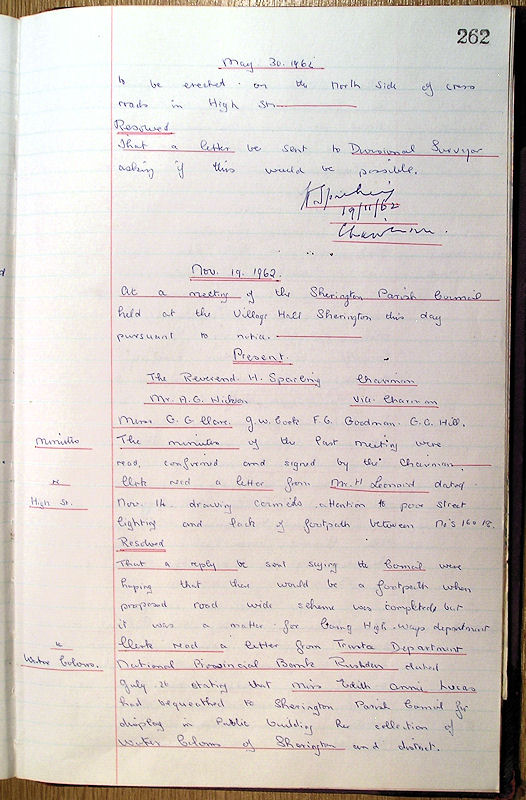 262
May. 30. 1962
to be erected on the North side of cross
roads in High St.
Resolved
That a letter be sent to Divisional Surveyor
asking if this would be possible.
19/11/62
Chairman.
Nov. 19. 1962.
At a meeting of the Sherington Parish Council
held at the Village Hall Sherington this day
pursuant to notice.
Present.
The Reverend H. Sparling Chairman
Mr. A.G. Vice Chairman
Messrs G. G. G.W. Cook F.G. Goodman. G.C. Hill.
Minutes
The minutes of the last meeting were
read, confirmed and signed by the Chairman.
re
High St.
Clerk read a letter from Mr. H Leonard dated.
Nov. 14. drawing Councils attention to poor street
lighting and lack of footpath between No's 16 18.
Resolved
That a reply be sent saying the Council were
hoping that there would be a footpath when
proposed road wide scheme was completed but
it was a matter for County High-Ways department
re
Water Colours.
Clerk read a letter from Trustee Department
National Provincial Bank dated
July 26 stating that Miss Edith Annie Lucas
had bequeathed to Sherington Parish Council for
display in Public building her collection of
Water Colours of Sherington and district.